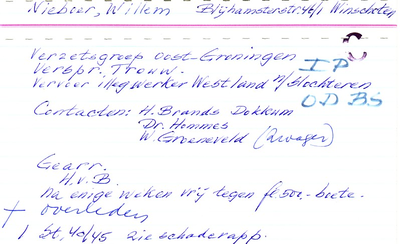 Nieboer, Willem Blijhamsterstr. 46/1 Winschoten
Verzetsgroep Oost-Groningen
Verspr. Trouw. I P
Vervoer illeg werker Westland n/Slochteren
O D B S
Contacten: H. Brands Dokkum
Dr. Hommes
W. Groeneveld (Zwager)
Gearr.
H.v.B.
Na enige weken vrij tegen fl 500,- boete.
+ overleden
1 St. 40/45 zie schaderapp.